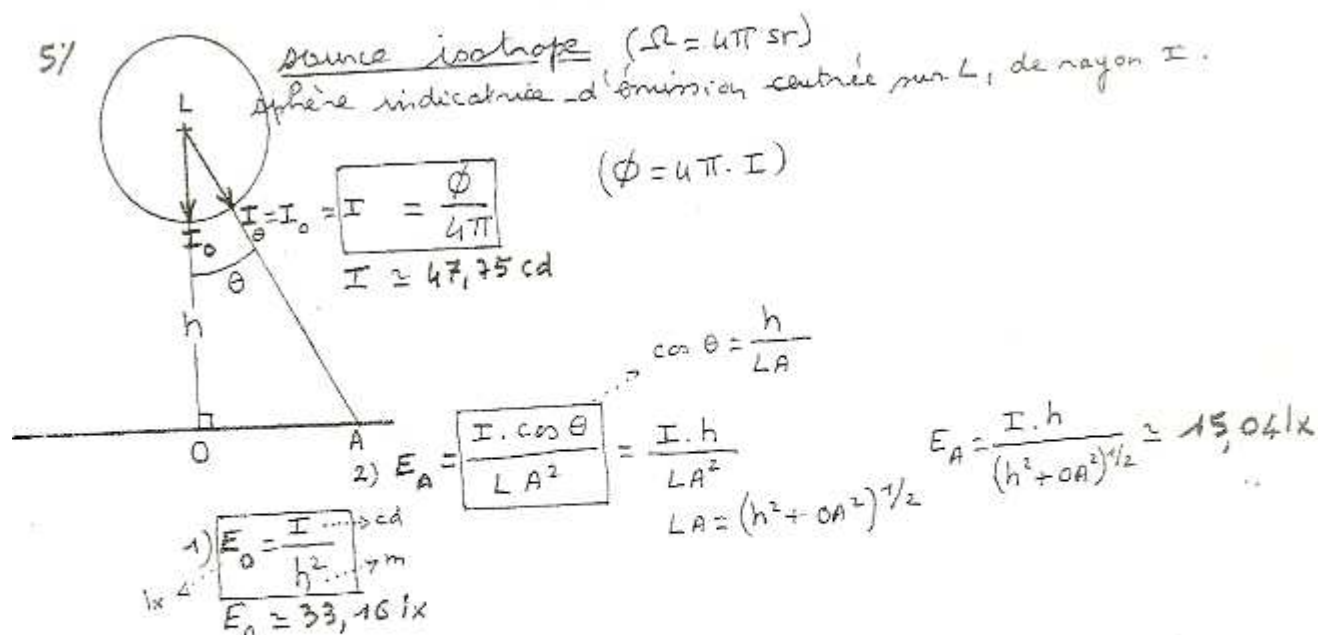 5/
source isotrope (Ω = 4π sr)
sphère indicatrice d'émission centrée sur L, de rayon I.
L
(ϕ = 4π. I)
I_θ = I_0 = I = ϕ / 4π
I_0
I ≃ 47,75 cd
θ
h
cos θ = h / LA
O
A
2) E_A = I. cos θ / LA² = I. h / LA²
E_A = I. h / (h² + OA²)^1/2 ≃ 15,04 lx
LA = (h² + OA²)^1/2
1) E_0 = I / h²
cd
m
lx
E_0 ≃ 33,16 lx